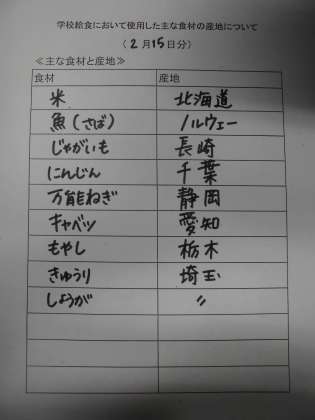 学校給食において使用した主な食材の産地について
（2月15日分）
≪主な食材と産地≫
食材 産地
米 北海道
魚（さば） ノルウェー
じゃがいも 長崎
にんじん 千葉
万能ねぎ 静岡
キャベツ 愛知
もやし 栃木
きゅうり 埼玉
しょうが 〃